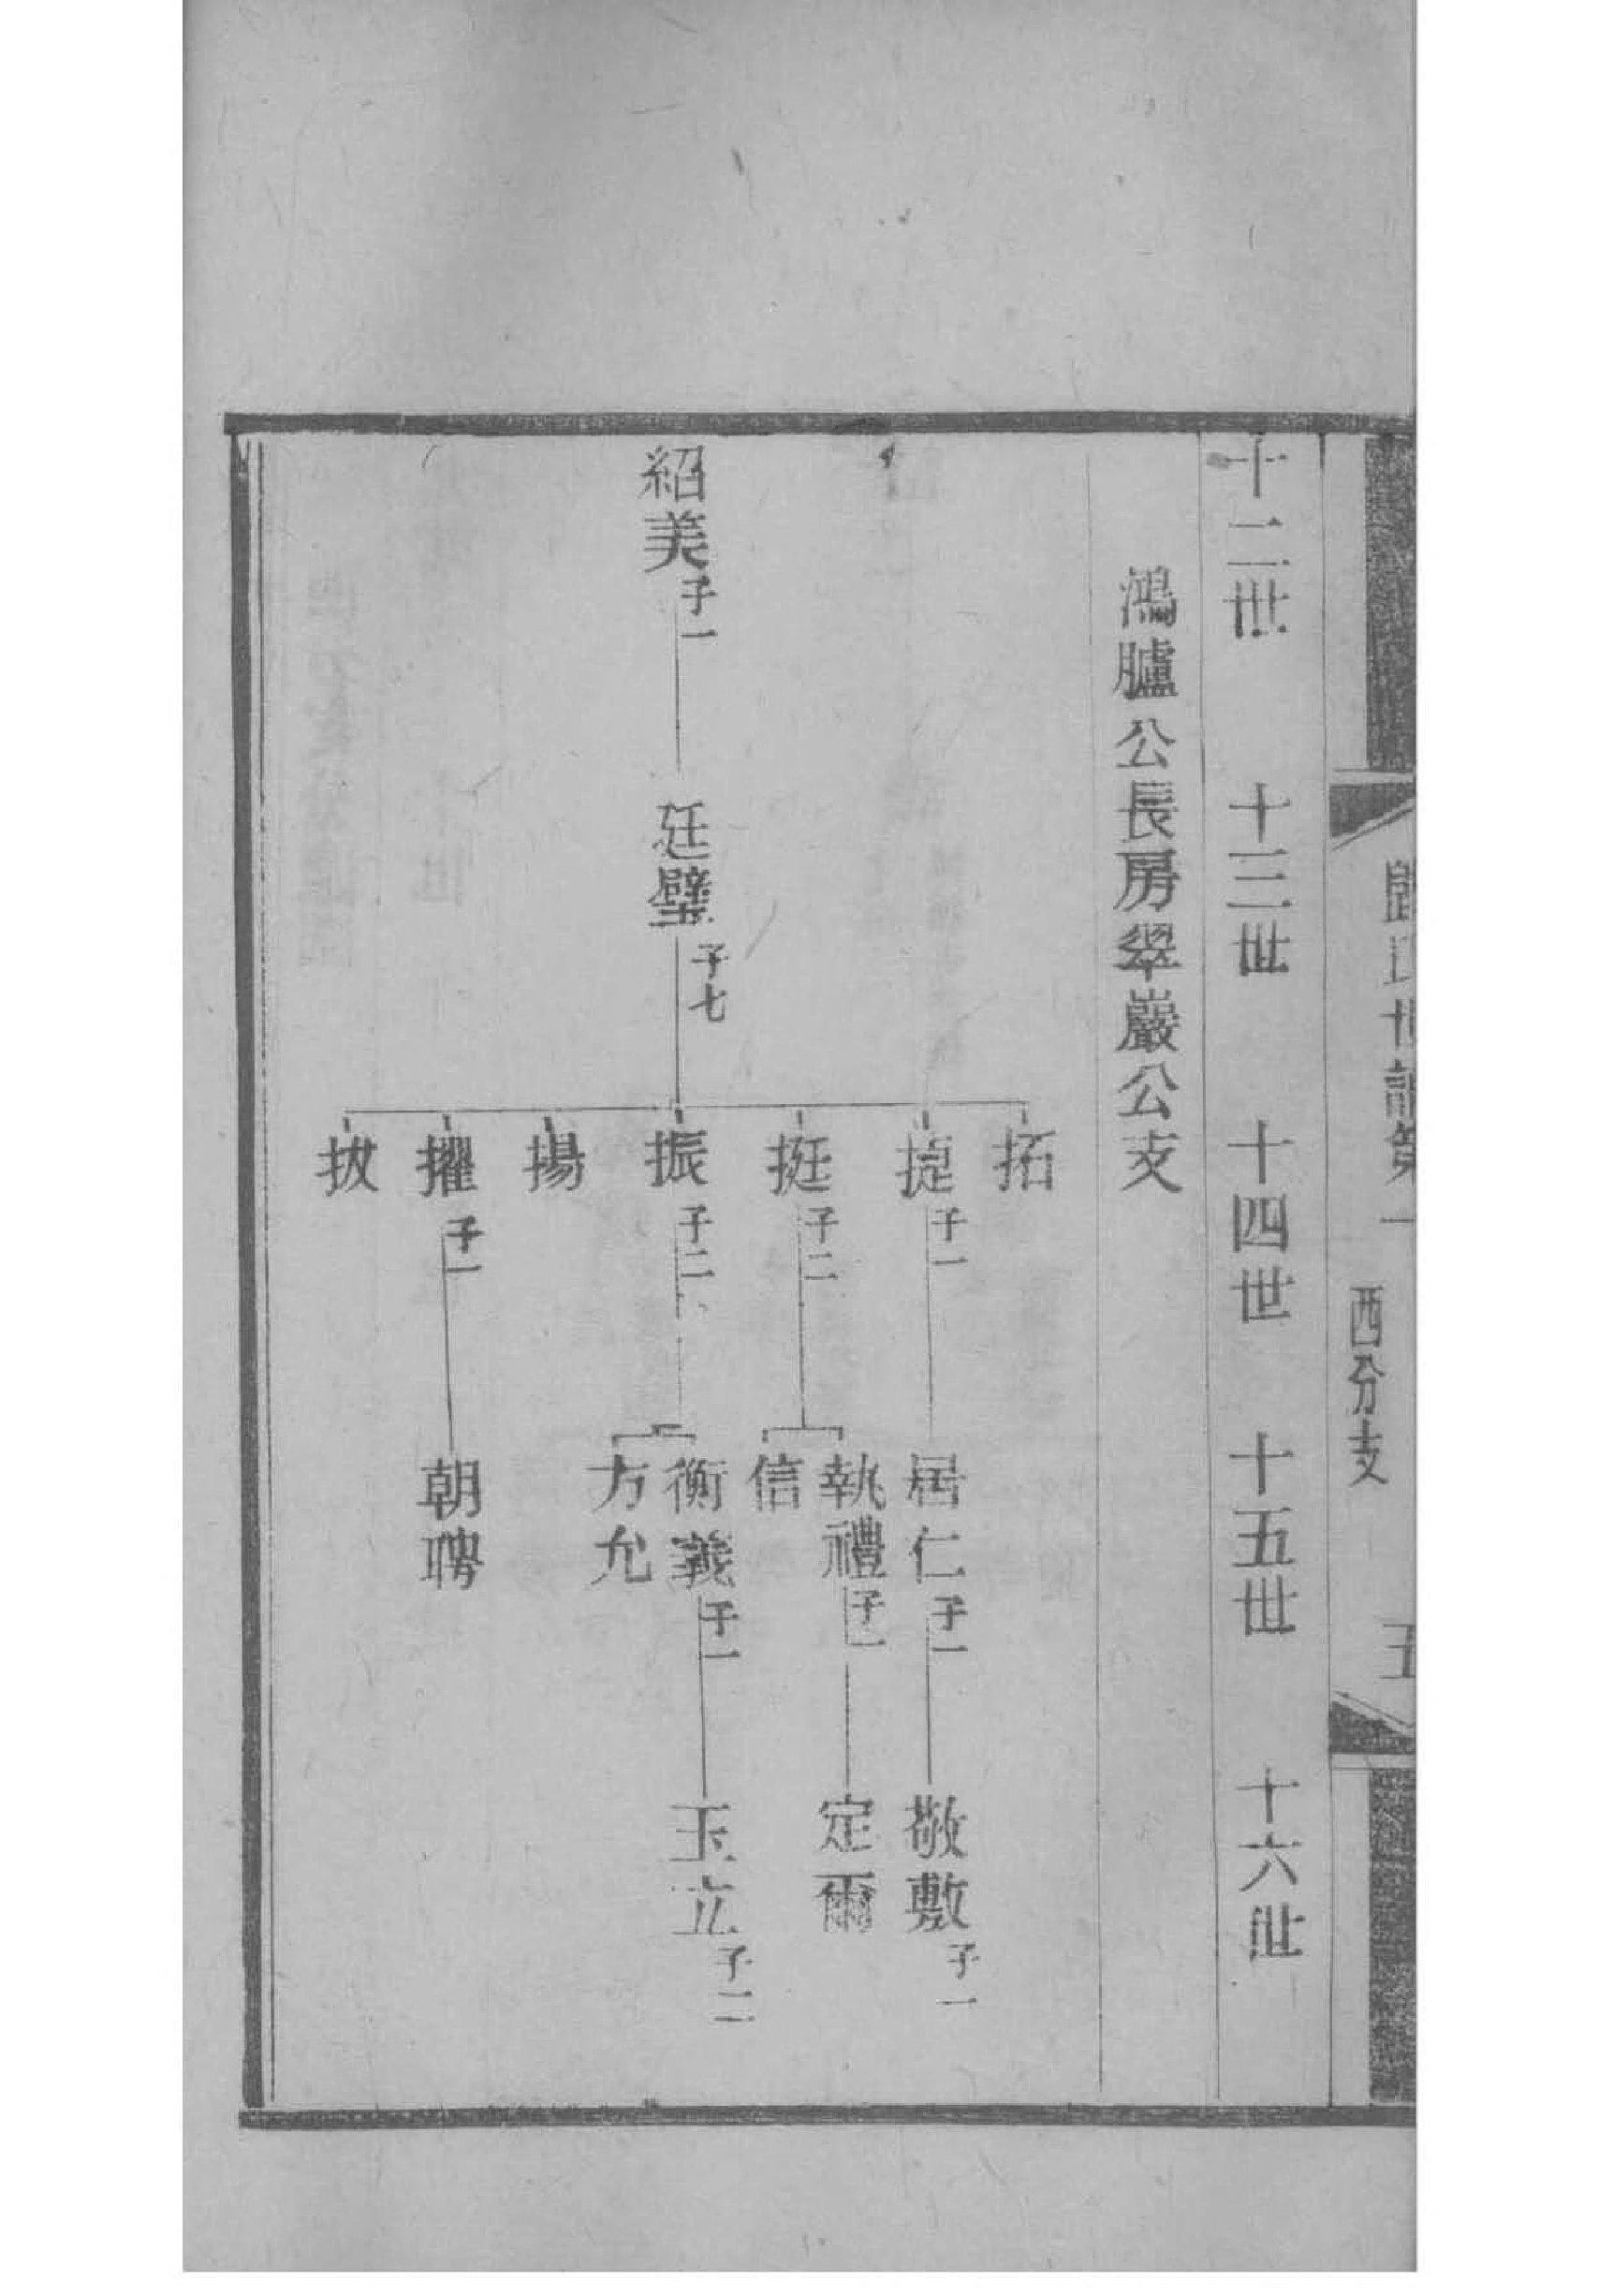 歸氏世譜第一
西分支
五
十二世
十三世
十四世
十五世
十六世
鴻臚公長房翠巖公支
紹美子一
廷璧子七
拓
捷子一
挺子二
振子二
揚
擢子一
拔
居仁子一
執禮子一
信
衡義子一
方允
朝聘
敬敷子一
定爾
玉立子二